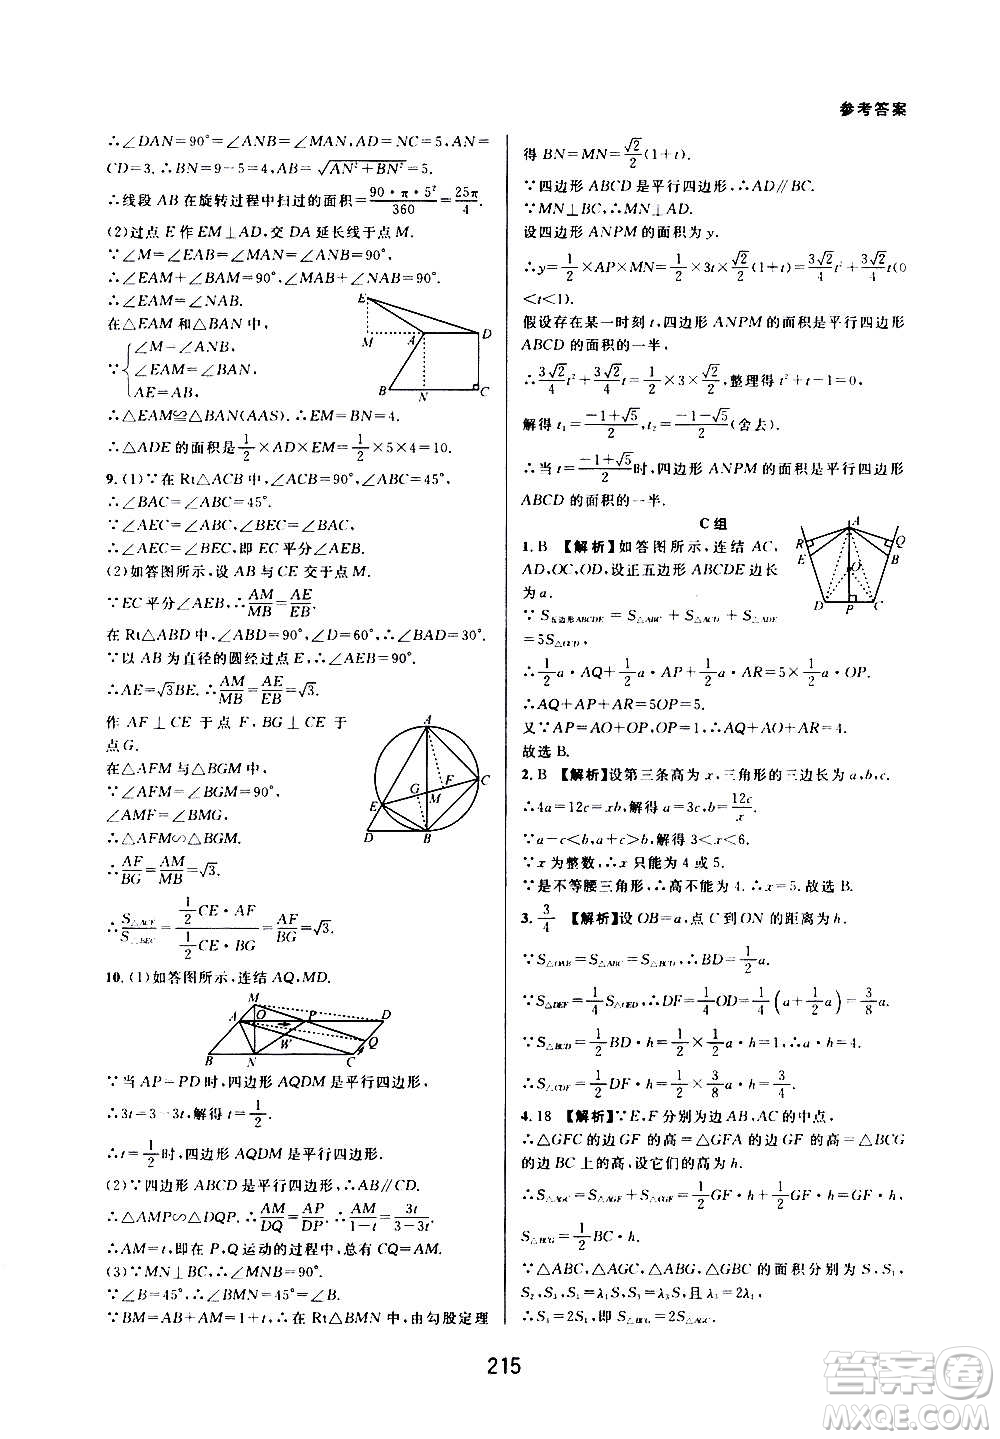 参考答案
∴∠DAN=90°=∠ANB=∠MAN,AD=NC=5,AN=
CD=3.∴BN=9-5=4,AB=√(AN²+BN²)=5.
∴线段 AB 在旋转过程中扫过的面积=90·π·5²/360=25π/4.
(2)过点 E 作 EM⊥AD,交 DA 延长线于点 M.
∵∠M=∠EAB=∠MAN=∠ANB=90°,
∴∠EAM+∠BAM=90°,∠MAB+∠NAB=90°.
∴∠EAM=∠NAB.
在△EAM 和△BAN 中,
∵{∠M=∠ANB,
∠EAM=∠BAN,
AE=AB,
∴△EAM≌△BAN(AAS).∴EM=BN=4.
∴△ADE 的面积是1/2×AD×EM=1/2×5×4=10.
E
M A D
B N C
9.(1)∵在 Rt△ACB 中,∠ACB=90°,∠ABC=45°,
∴∠BAC=∠ABC=45°.
∵∠AEC=∠ABC,∠BEC=∠BAC,
∴∠AEC=∠BEC,即 EC 平分∠AEB.
(2)如答图所示,设 AB 与 CE 交于点 M.
∵EC 平分∠AEB,∴AM/MB=AE/EB.
在 Rt△ABD 中,∠ABD=90°,∠D=60°,∴∠BAD=30°.
∵以 AB 为直径的圆经过点 E,∴∠AEB=90°.
∴AE=√3BE.∴AM/MB=AE/EB=√3.
作 AF⊥CE 于点 F,BG⊥CE 于
点 G.
在△AFM 与△BGM 中,
∵∠AFM=∠BGM=90°,
∠AMF=∠BMG,
∴△AFM∽△BGM.
∴AF/BG=AM/MB=√3.
∴S△ACE/S△BEC=(1/2CE·AF)/(1/2CE·BG)=AF/BG=√3.
A
F C
G M
E
D B
10.(1)如答图所示,连结 AQ,MD.
M
A O P D
W Q
B N C
∵当 AP=PD 时,四边形 AQDM 是平行四边形,
∴3t=3-3t,解得 t=1/2.
∴t=1/2时,四边形 AQDM 是平行四边形.
(2)∵四边形 ABCD 是平行四边形,∴AB∥CD.
∴△AMP∽△DQP.∴AM/DQ=AP/DP.∴AM/1-t=3t/3-3t.
∴AM=t,即在 P,Q 运动的过程中,总有 CQ=AM.
(3)∵MN⊥BC,∴∠MNB=90°.
∵∠B=45°,∴∠BMN=45°=∠B.
∵BM=AB+AM=1+t,∴在 Rt△BMN 中,由勾股定理
得 BN=MN=√2/2(1+t).
∵四边形 ABCD 是平行四边形,∴AD∥BC.
∵MN⊥BC,∴MN⊥AD.
设四边形 ANPM 的面积为 y.
∴y=1/2×AP×MN=1/2×3t×√2/2(1+t)=3√2/4t²+3√2/4t(0
<t<1).
假设存在某一时刻 t,四边形 ANPM 的面积是平行四边形
ABCD 的面积的一半.
∴3√2/4t²+3√2/4t=1/2×3×√2/2,整理得 t²+t-1=0,
解得 t₁=(-1+√5)/2,t₂=(-1-√5)/2(舍去).
∴当 t=(-1+√5)/2时,四边形 ANPM 的面积是平行四边形
ABCD 的面积的一半.
C 组
1.B 【解析】如答图所示,连结 AC,
AD,OC,OD,设正五边形 ABCDE 边长
为 a.
∵S五边形ABCDE=S△ABC+S△ACD+S△ADE
=5S△OCD,
∴1/2a·AQ+1/2a·AP+1/2a·AR=5×1/2a·OP.
∴AQ+AP+AR=5OP=5.
又∵AP=AO+OP=AO+1,∴AQ+AO+AR=4.
故选 B.
A
R Q
E B
O
D P C
2.B 【解析】设第三条高为 x,三角形的三边长为 a,b,c.
∴4a=12c=xb,解得 a=3c,b=12c/x.
∵a-c<b,a+c>b,解得 3<x<6.
∵x 为整数,∴x 只能为 4 或 5.
∵是不等腰三角形,∴高不能为 4.∴x=5.故选 B.
3.3/4 【解析】设 OB=a,点 C 到 ON 的距离为 h.
∵S△OAB=S△ABC=S△BCD,∴BD=1/2a.
∵S△DEF=1/4S△OED,∴DF=1/4OD=1/4(a+1/2a)=3/8a.
∵S△BCD=1/2BD·h=1/2×1/2a·h=1,
∴S△CDF=1/2DF·h=1/2×3/8a·h=3/4.
4.18 【解析】∵E,F 分别为边 AB,AC 的中点,
∴△GFC 的边 GF 的高=△GFA 的边 GF 的高=△BCG
的边 BC 上的高,设它们的高为 h.
∴S△AGC=S△AGF+S△CGF=1/2GF·h+1/2GF·h=GF·h,
S△BCG=1/2BC·h.
∵△ABC,△AGC,△ABG,△GBC 的面积为 S,S₁,
S₂,S₃,S₁=λ₁S,S₂=λ₂S,S₃=λ₃S,且 λ₃=2λ₁,
∴S₃=2S₁,即 S△BCG=2S△AGC.
215
答案圈
MXQE.COM